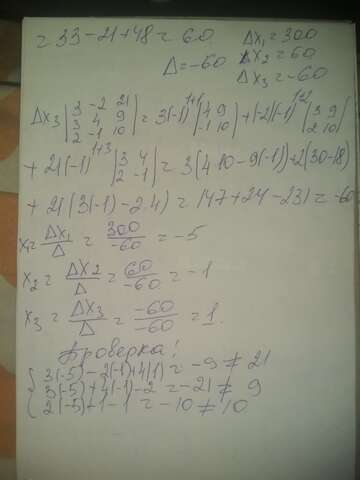 = 33 - 21 + 48 = 60
Δx₁ = 300
Δ = -60 Δx₂ = 60
Δx₃ = -60
Δx₃ |3 -2 21; 3 4 9; 2 -1 10| = 3(-1)¹⁺¹ |4 9; -1 10| + (-2)(-1)¹⁺² |3 9; 2 10|
+ 21(-1)¹⁺³ |3 4; 2 -1| = 3(4·10 - 9(-1)) + 2(30-18)
+ 21(3(-1) - 2·4) = 147 + 24 - 231 = -60
x₁ = Δx₁/Δ = 300/-60 = -5
x₂ = Δx2/Δ = 60/-60 = -1
x₃ = Δx₃/Δ = -60/-60 = 1.
Проверка!
{ 3(-5) - 2(-1) + 4(1) = -9 ≠ 21
3(-5) + 4(-1) - 2 = -21 ≠ 9
2(-5) + 1 - 1 = -10 ≠ 10